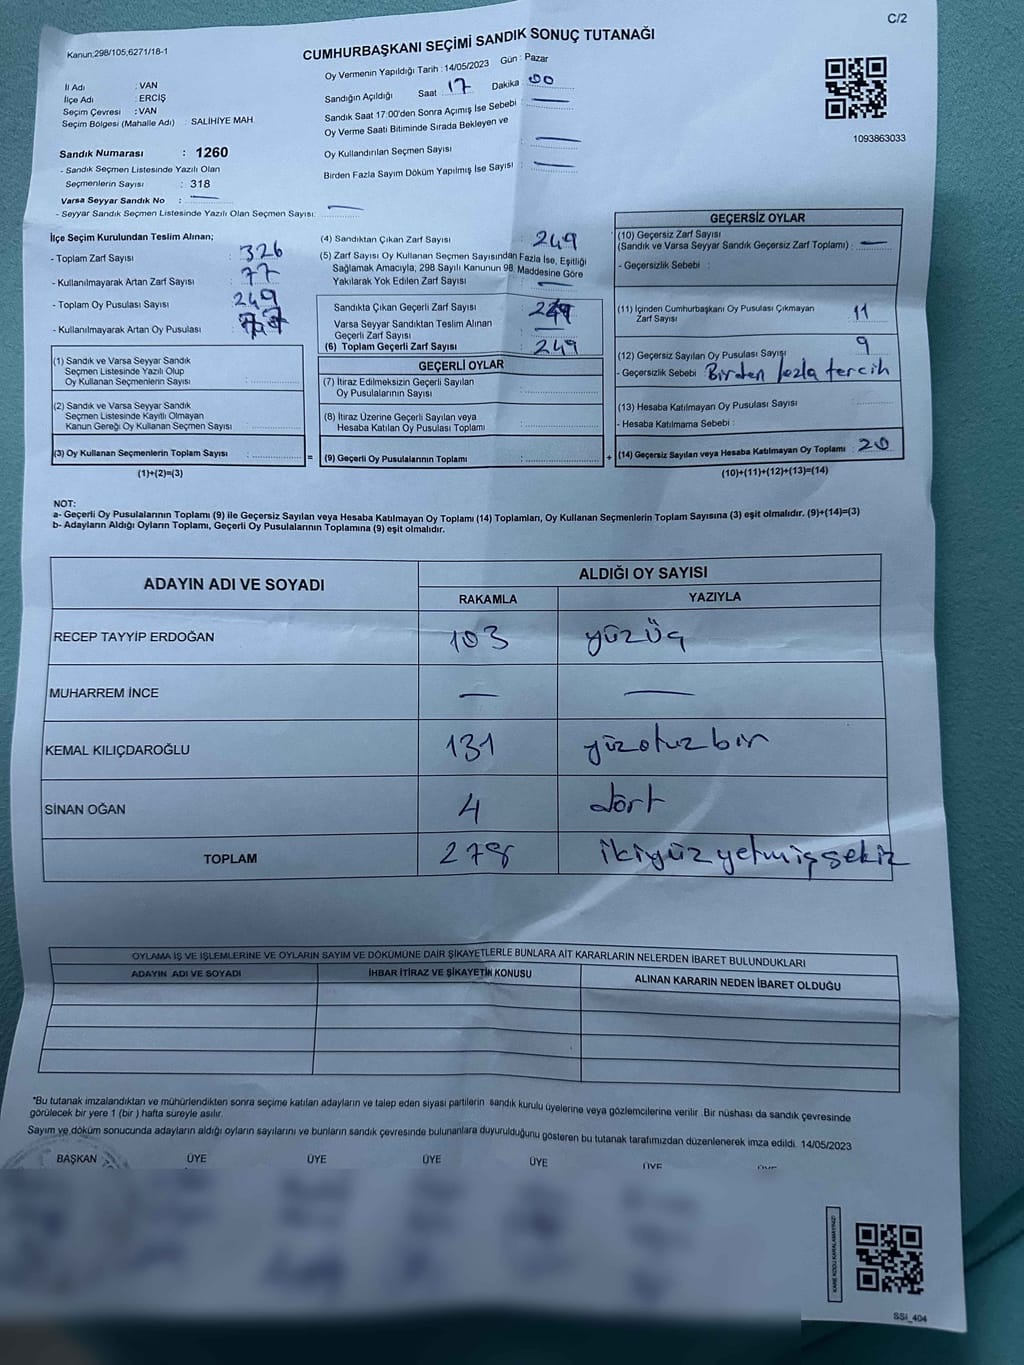 C/2
Kanun;298/105,6271/18-1
CUMHURBAŞKANI SEÇİMİ SANDIK SONUÇ TUTANAĞI
İl Adı : VAN
İlçe Adı : ERCİŞ
Seçim Çevresi : VAN
Seçim Bölgesi (Mahalle Adı) : SALİHİYE MAH
Sandık Numarası : 1260
- Sandık Seçmen Listesinde Yazılı Olan
Seçmenlerin Sayısı : 318
Varsa Seyyar Sandık No : —
- Seyyar Sandık Seçmen Listesinde Yazılı Olan Seçmen Sayısı: —
Oy Vermenin Yapıldığı Tarih : 14/05/2023 Gün : Pazar
Sandığın Açıldığı Saat 17 Dakika 00
Sandık Saat 17:00'den Sonra Açımış İse Sebebi : —
Oy Verme Saati Bitiminde Sırada Bekleyen ve
Oy Kullandırılan Seçmen Sayısı : —
Birden Fazla Sayım Döküm Yapılmış İse Sayısı : —
1093863033
İlçe Seçim Kurulundan Teslim Alınan;
- Toplam Zarf Sayısı : 326
- Kullanılmayarak Artan Zarf Sayısı : 77
- Toplam Oy Pusulası Sayısı : 249
- Kullanılmayarak Artan Oy Pusulası :
(1) Sandık ve Varsa Seyyar Sandık
Seçmen Listesinde Yazılı Olup
Oy Kullanan Seçmenlerin Sayısı :
(2) Sandık ve Varsa Seyyar Sandık
Seçmen Listesinde Kayıtlı Olmayan
Kanun Gereği Oy Kullanan Seçmen Sayısı :
(3) Oy Kullanan Seçmenlerin Toplam Sayısı :
(1)+(2)=(3)
(4) Sandıktan Çıkan Zarf Sayısı : 249
(5) Zarf Sayısı Oy Kullanan Seçmen Sayısından Fazla İse, Eşitliği
Sağlamak Amacıyla, 298 Sayılı Kanunun 98. Maddesine Göre
Yakılarak Yok Edilen Zarf Sayısı : —
Sandıkta Çıkan Geçerli Zarf Sayısı :
Varsa Seyyar Sandıktan Teslim Alınan
Geçerli Zarf Sayısı : —
(6) Toplam Geçerli Zarf Sayısı : 249
GEÇERLİ OYLAR
(7) İtiraz Edilmeksizin Geçerli Sayılan
Oy Pusulalarının Sayısı :
(8) İtiraz Üzerine Geçerli Sayılan veya
Hesaba Katılan Oy Pusulası Toplamı :
= (9) Geçerli Oy Pusulalarının Toplamı : +
GEÇERSİZ OYLAR
(10) Geçersiz Zarf Sayısı
(Sandık ve Varsa Seyyar Sandık Geçersiz Zarf Toplamı) : —
- Geçersizlik Sebebi :
(11) İçinden Cumhurbaşkanı Oy Pusulası Çıkmayan
Zarf Sayısı : 11
(12) Geçersiz Sayılan Oy Pusulası Sayısı : 9
- Geçersizlik Sebebi : Birden fazla tercih
(13) Hesaba Katılmayan Oy Pusulası Sayısı :
- Hesaba Katılmama Sebebi :
(14) Geçersiz Sayılan veya Hesaba Katılmayan Oy Toplamı : 20
(10)+(11)+(12)+(13)=(14)
NOT:
a- Geçerli Oy Pusulalarının Toplamı (9) ile Geçersiz Sayılan veya Hesaba Katılmayan Oy Toplamı (14) Toplamları, Oy Kullanan Seçmenlerin Toplam Sayısına (3) eşit olmalıdır. (9)+(14)=(3)
b- Adayların Aldığı Oyların Toplamı, Geçerli Oy Pusulalarının Toplamına (9) eşit olmalıdır.
ADAYIN ADI VE SOYADI
ALDIĞI OY SAYISI
RAKAMLA YAZIYLA
RECEP TAYYİP ERDOĞAN 103 yüzüç
MUHARREM İNCE — —
KEMAL KILIÇDAROĞLU 131 yüzotuzbir
SİNAN OĞAN 4 dört
TOPLAM 278 ikiyüzyetmişsekiz
OYLAMA İŞ VE İŞLEMLERİNE VE OYLARIN SAYIM VE DÖKÜMÜNE DAİR ŞİKAYETLERLE BUNLARA AİT KARARLARIN NELERDEN İBARET BULUNDUKLARI
ADAYIN ADI VE SOYADI İHBAR İTİRAZ VE ŞİKAYETİN KONUSU ALINAN KARARIN NEDEN İBARET OLDUĞU
"Bu tutanak imzalandıktan ve mühürlendikten sonra seçime katılan adayların ve talep eden siyasi partilerin sandık kurulu üyelerine veya gözlemcilerine verilir .Bir nüshası da sandık çevresinde
görülecek bir yere 1 (bir ) hafta süreyle asılır.
Sayım ve döküm sonucunda adayların aldığı oyların sayılarını ve bunların sandık çevresinde bulunanlara duyurulduğunu gösteren bu tutanak tarafımızdan düzenlenerek imza edildi. 14/05/2023
BAŞKAN ÜYE ÜYE ÜYE ÜYE ÜYE ÜYE
KARE KODU KARALAMAYINIZ!
SSI_404